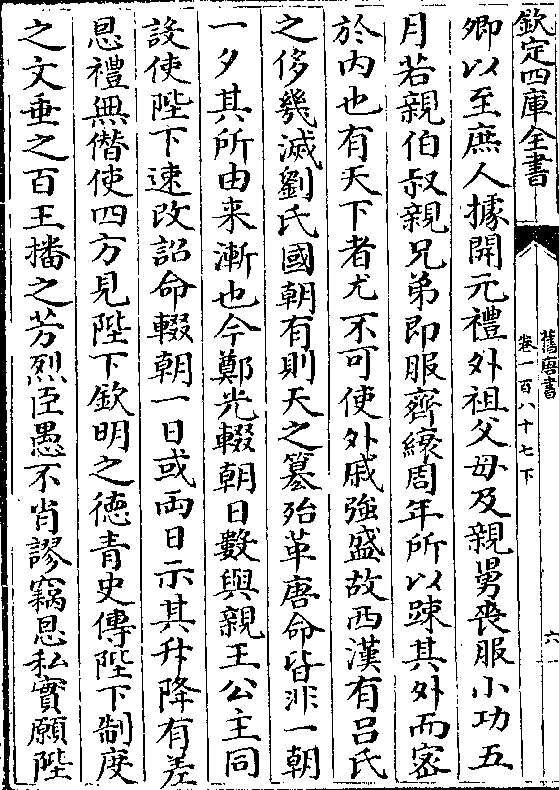 欽定四庫全書
舊唐書
卷一百八十七下
六
卿以至庶人據開元禮外祖父母及親舅喪服小功五
月若親伯叔親兄弟即服齊縗周年所以踈其外而宻
於内也有天下者尤不可使外戚強盛故西漢有吕氏
之侈幾滅劉氏國朝有則天之簒殆革唐命皆非一朝
一夕其所由来漸也今鄭光輟朝日數與親王公主同
設使陛下速改詔命輟朝一日或兩日示其升降有差
恩禮無僭使四方見陛下欽明之徳青史傳陛下制度
之文垂之百王播之芳烈臣愚不肖謬竊恩私實願陛